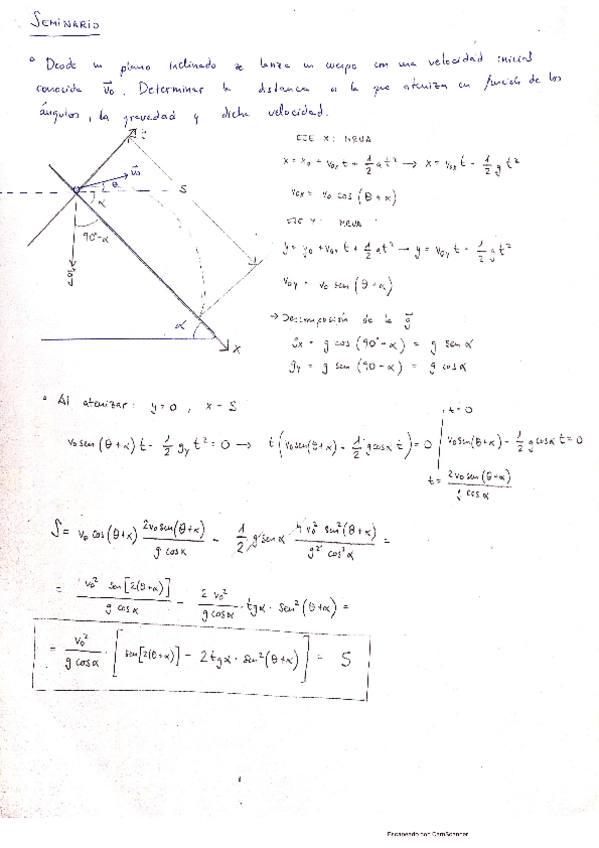 SEMINARIO
• Desde un plano inclinado se lanza un cuerpo con una velocidad inicial
conocida v⃗0. Determinar la distancia a la que aterriza en función de los
ángulos, la gravedad y dicha velocidad.
EJE X: MRUA
x = x0 + v0x t + 1/2 at² → x = v0x t - 1/2 g t²
v0x = v0 cos (θ+α)
EJE Y: MRUA
y = y0 + v0y t + 1/2 at² → y = v0y t - 1/2 g t²
v0y = v0 sen (θ+α)
→ Descomposición de la g⃗
gx = g cos (90°-α) = g sen α
gy = g sen (90-α) = g cos α
v⃗0
θ
S
α
90°-α
g⃗
α
X
• Al aterrizar: y=0, x = S
t=0
v0 sen (θ+α) t - 1/2 gy t² = 0 → t (v0 sen(θ+α) - 1/2 g cosα t) = 0
v0 sen(θ+α) - 1/2 g cosα t = 0
t = 2v0 sen(θ+α) / g cosα
S = v0 cos(θ+α) 2v0 sen(θ+α) / g cosα - 1/2 g sen α 4 v0² sen²(θ+α) / g² cos²α =
= v0² sen[2(θ+α)] / g cosα - 2 v0² / g cosα · tgα · sen²(θ+α) =
= v0² / g cosα · [sen[2(θ+α)] - 2tgα · sen²(θ+α)] = S
Escaneado con CamScanner